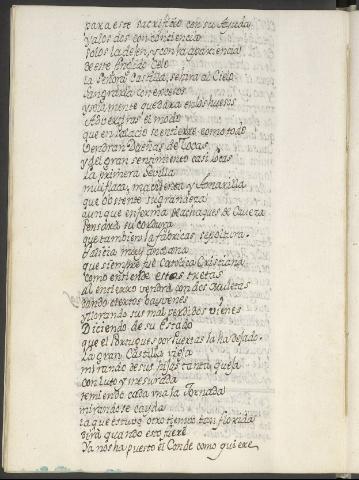 para este sacrifiçio con su Ayuda
y a los dos con conciencia
solos la dejen, y con la apariencia
de este fingido Celo
la Señora Castilla, se ira al Cielo
sangrarla con excesos
y solamente quedara en los huesos
Advertid el modo
que en Palacio se entierre como todo
Vendran Dueñas de Tocas
y del gran sentimiento casi locas
La primera Sevilla
mui flaca, macilenta y Amarilla
que obstente su grandeza
aunque enferma de achaques de Caveza
Pensara su cordura
que tambien la fabrican sepoltura.
Galicia muy Anciana
que siempre fue Catolica Cristiana
como entiende estas tretas
al entierro vendra con dos Muletas
dando ciertos bayvenes
y llorando sus mal perdidos vienes
Diciendo de su Estado
que el Portugues por Puertas la ha dejado.
La gran Castilla vieja
mirando de sus hijos tanta queja
con luto y mesurada
temiendo cada mala Jornada
mirandose cayda
la que estuvo otro tiempo tan florida
dira quando esto fuere
Ya nos ha puesto el Conde como quiere